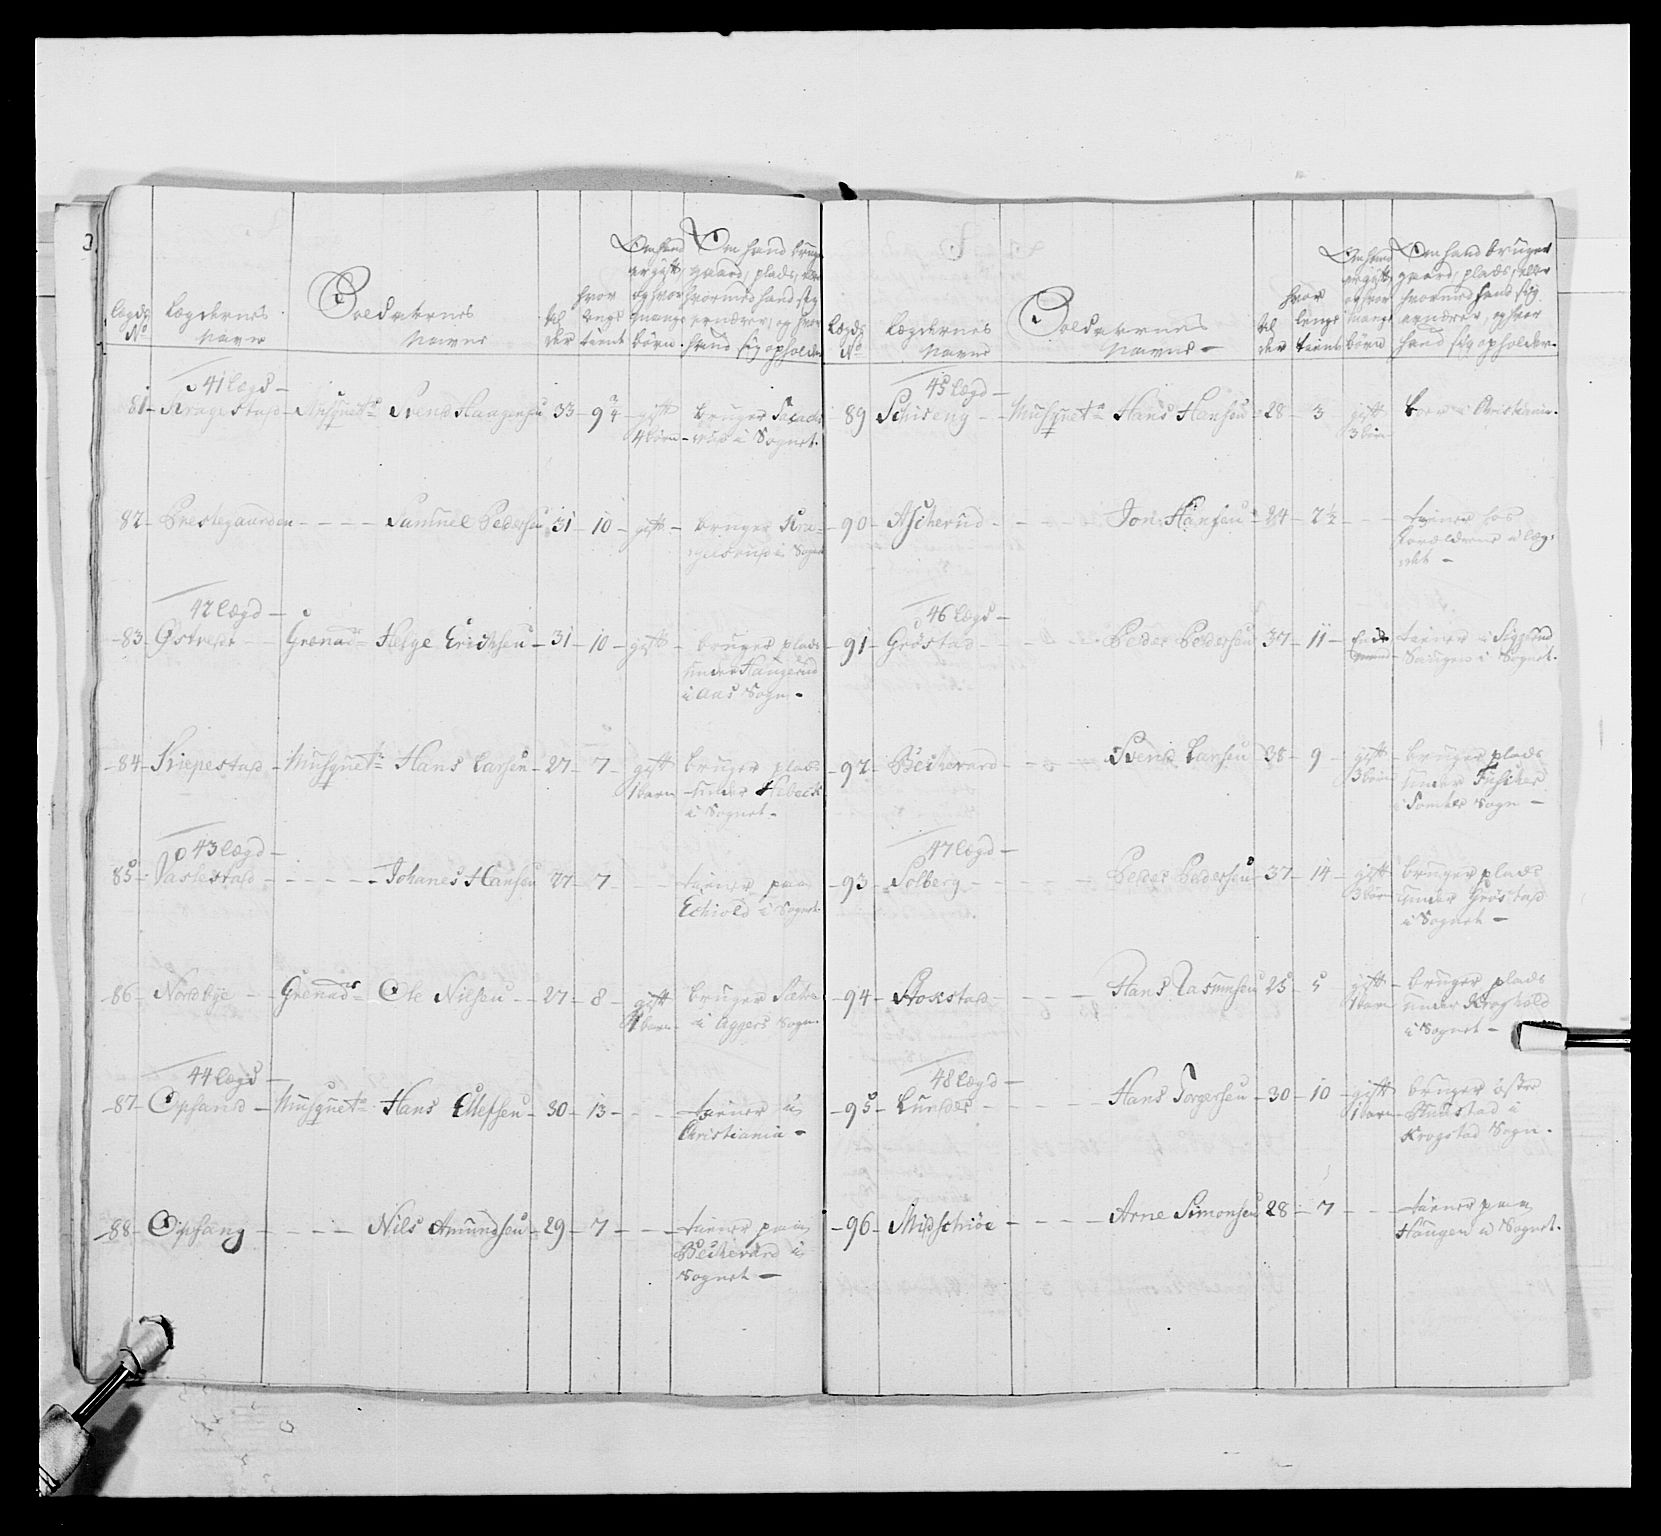 Lægds No
Lægdernes Navne
Soldaternes Navne
Alder
hvor lenge tient
Om hand er gift og hvor mange børn
Om hand bruger gaard, plads, eller hvormed hand sig ernærer, og hvor hand sig opholder
41 Lægd
81 Kragestad Musquetr Svend Haagensen 33 9 3/4 gift bruger
4 børn i Sognet.
82 Prestegaarden Samuel Pedersen 31 10 gift bruger
i Sognet
42 Lægd
83 Grenadr Helge Erichsen 31 10 gift bruger plads
under Haugerud
i Aas Sogn
84 Kiepestad Musquetr Hans Larsen 27 7 gift bruger plads
1 barn under Holbeck
i Sognet
43 Lægd
85 Johanes Hansen 27 7 tiener paa
i Sognet
86 Nordbye Grenadr Ole Nilsen 27 8 gift bruger
1 barn i Aggers Sogn
44 Lægd
87 Opsand Musquetr Hans Ellefsen 30 13 tiener i
Christiania
88 Opsang Nils Amundsen 29 7 tiener paa
Becherard i
Sognet
Lægds No
Lægdernes Navne
Soldaternes Navne
Alder
hvor lenge tient
Om hand er gift og hvor mange børn
Om hand bruger gaard, plads, eller hvormed hand sig ernærer, og hvor hand sig opholder
45 Lægd
89 Schiseng Musquetr Hans Hansen 28 3 gift boer i Christiania
3 børn
90 Ascherud Jon Hansen 24 2 1/2 tiener hos
Forældrene i Læg-
det
46 Lægd
91 Grøstad Peder Pedersen 37 11 Enke tiener i
mand i Sognet
92 Becherard Svend Larsen 38 9 gift bruger plads
3 børn under
Sogn
47 Lægd
93 Solberg Peder Pedersen 37 14 gift bruger plads
3 børn under Grøstad
i Sognet
94 Stokstad Hans Rasmusen 25 5 gift bruger plads
1 barn under
i Sognet
48 Lægd
95 Lunder Hans Torgersen 30 10 gift bruger øster
1 barn Rustad i
Krogstad Sogn
96 Midschiøe Arne Simonsen 28 7 tiener paa
Haugen i Sognet